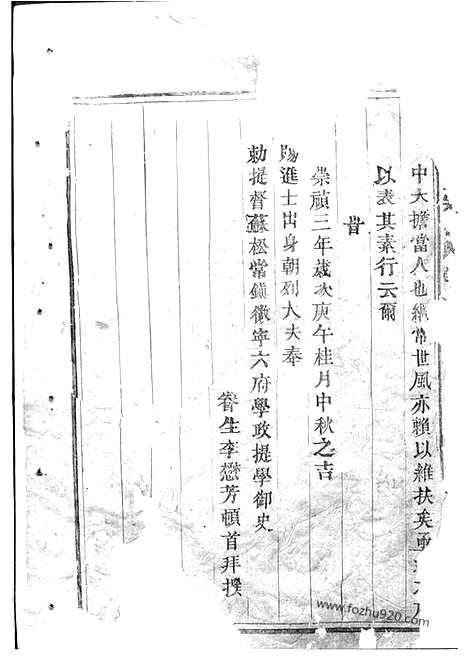 中大擔當人也綱常世風亦賴以維扶矣
以表其素行云爾
旹
崇禎三年歲次庚午桂月中秋之吉
賜進士出身朝列大夫奉
勅提督蘇松常鎮徽寧六府學政提學御史
眷生李懋芳頓首拜撰
www.fozhu920.com